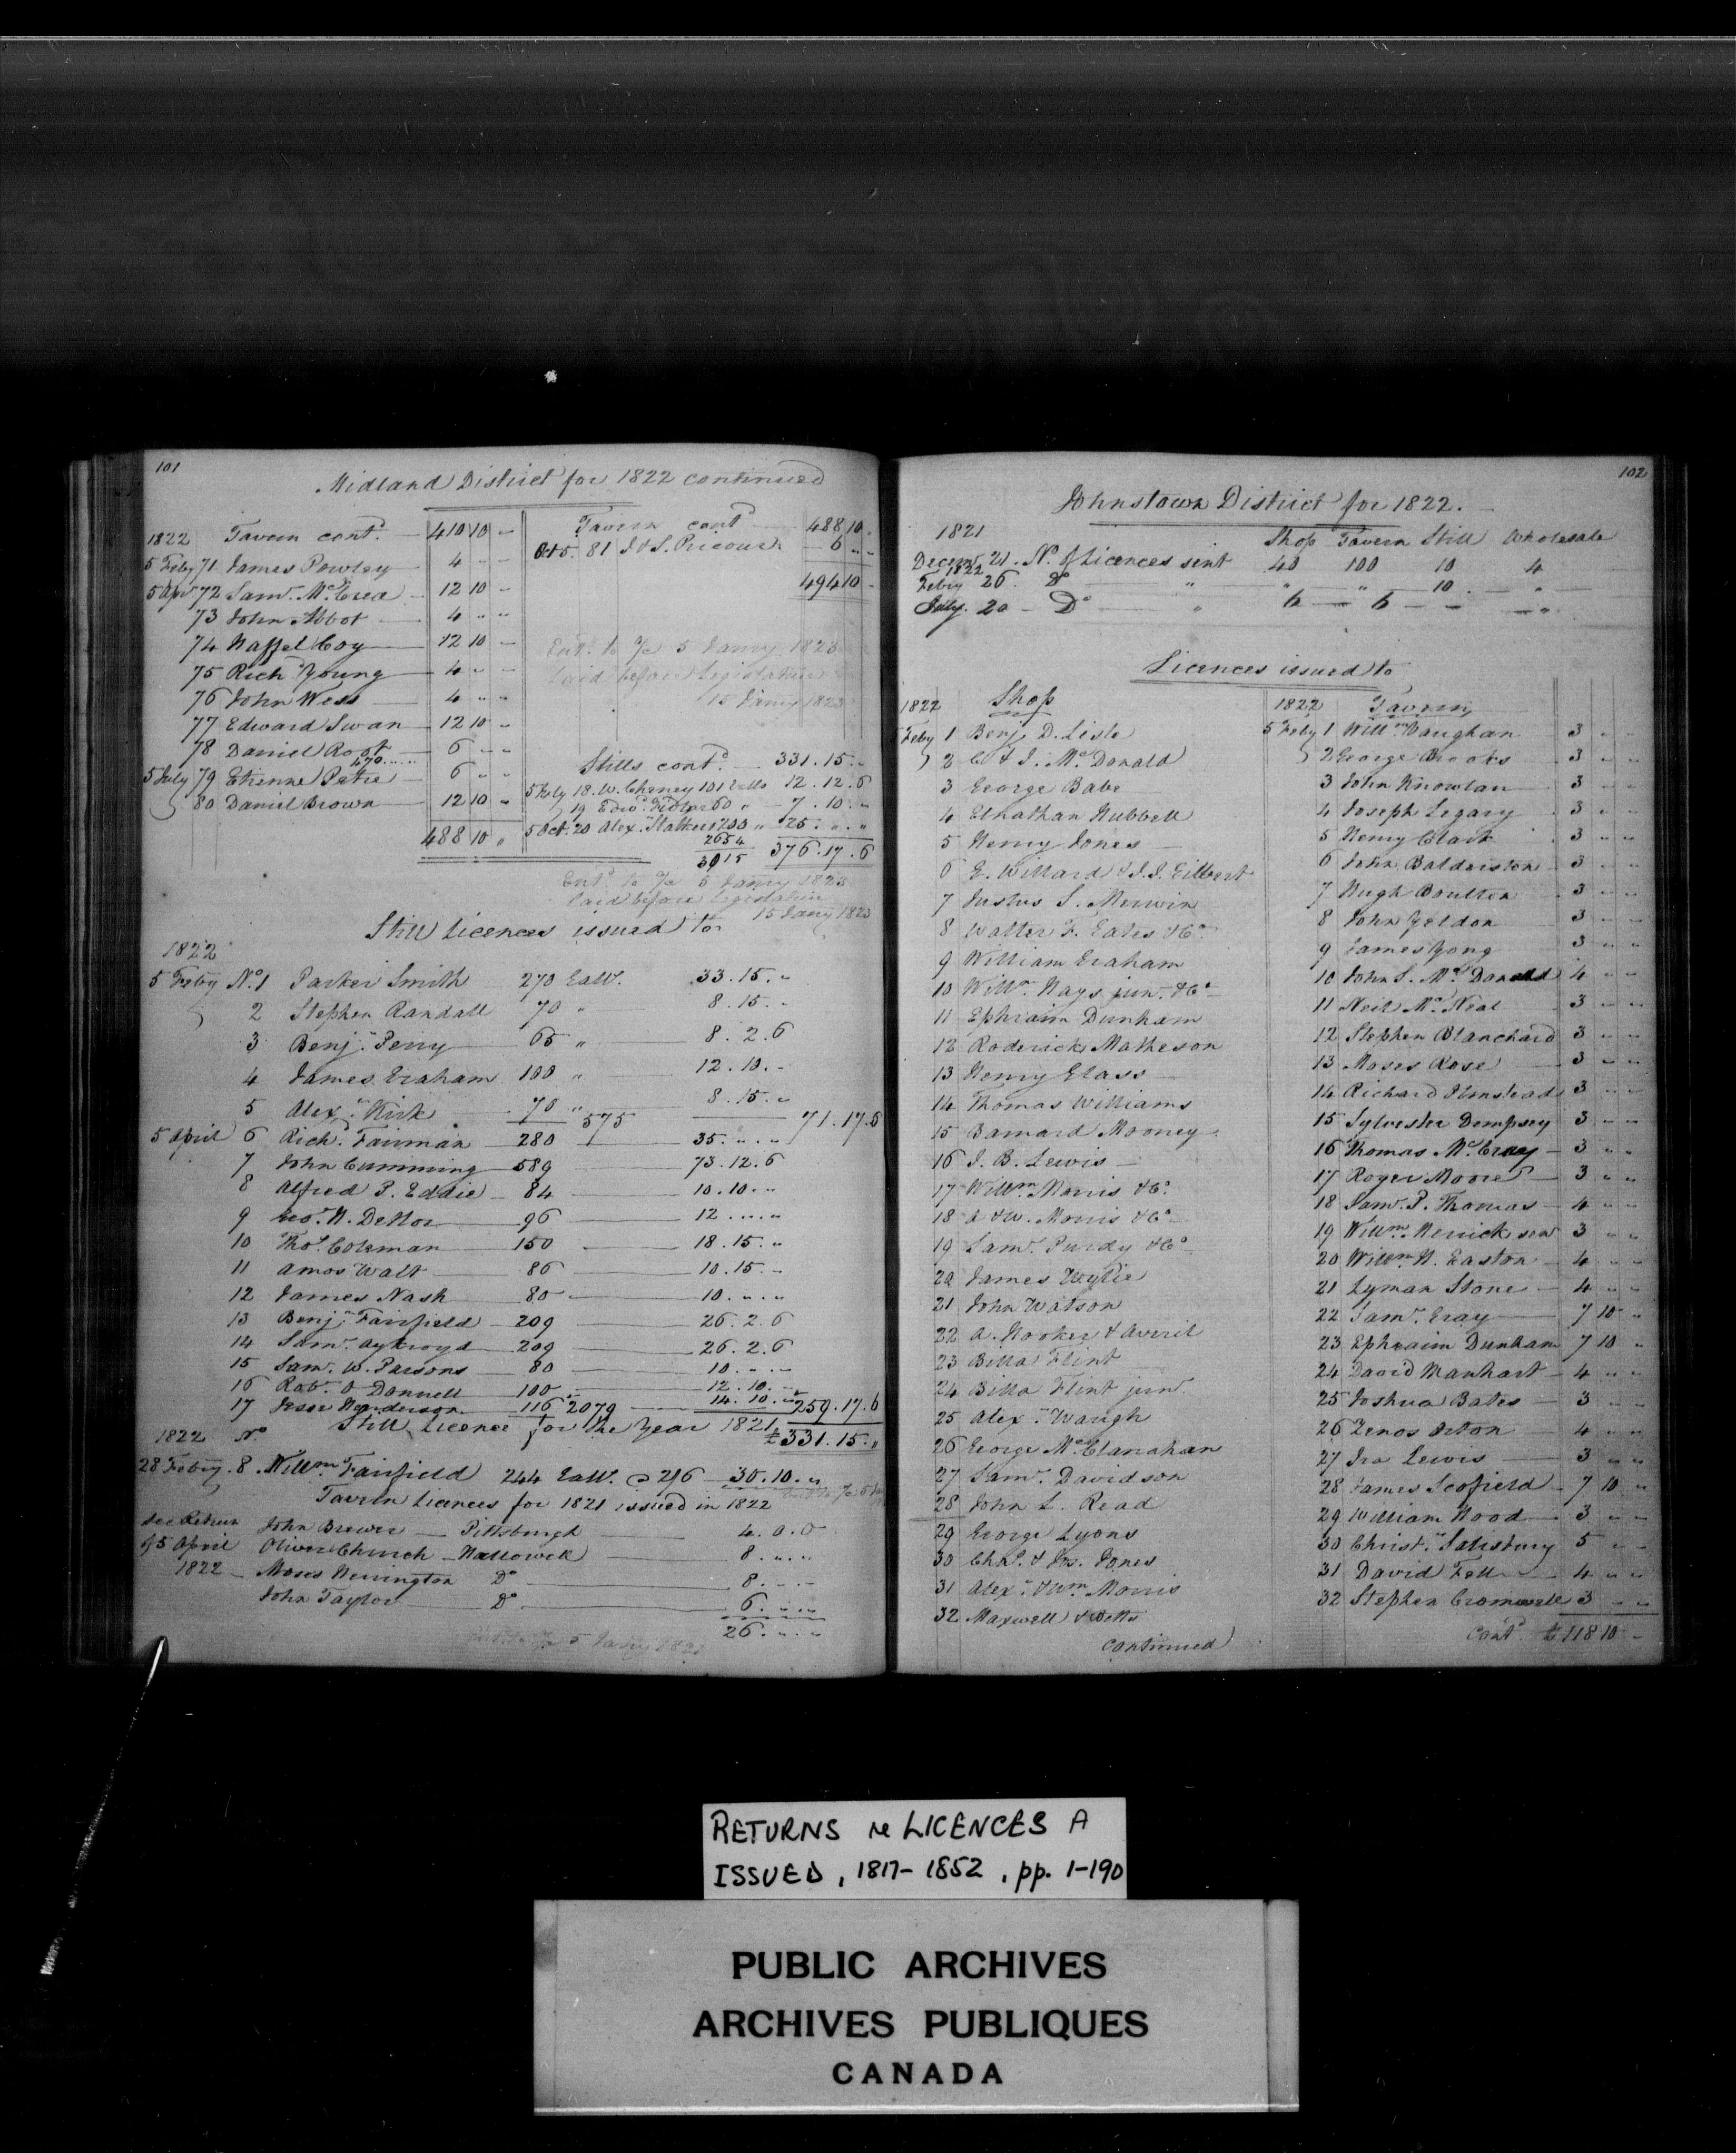 101
Midland District for 1822 continued
1822 Tavern cont.d 410 10 "
5 Feby 71 James Powley 4 " "
5 Apr 72 Sam.l McCrea 12 10 "
73 John Abbot 4 " "
74 Haffel Coy 12 10 "
75 Rich.d Young 4 " "
76 John West 4 " "
77 Edward Swan 12 10 "
78 Daniel Root 6 " "
470 " "
5 July 79 Etienne Petrie 6 " "
80 Daniel Brown 12 10 "
488 10 "
Tavern cont.d 488 10 "
Oct 5. 81 J. & S. 6 " "
494 10 "
Ent.d to Jc 5 Jan.ry 1823
laid before Legislature
15 Jan.ry 1823
Stills cont.d 331.15."
5 July 18. W. Cheney 101 Galls 12.12.6
19 Edw.d 60 " 7.10."
5 Oct. 20 Alex.r 200 " 25."."
2654
3015 376.17.6
Ent.d to Jc 5 Jan.ry 1823
laid before Legislature
15 Jan.ry 1823
Still Licences issued to
1822
5 Feby No. 1 Parker Smith 270 Gall. 33.15."
2 Stephen Randall 70 " 8.15."
3 Benj.n Perry 65 " 8.2.6
4 James Graham 100 " 12.10."
5 Alex.r Kirk 70 " 575 8.15." 71.17.6
5 April 6 Rich.d Fairman 280 35."."
7 John Cumming 589 73.12.6
8 Alfred P. Eddie 84 10.10."
9 Geo. H. Detlor 96 12."."
10 Tho.s Coleman 150 18.15."
11 Amos Walt 86 10.15."
12 James Nash 80 10."."
13 Benj.n Fairfield 209 26.2.6
14 Sam.l Aykroyd 209 26.2.6
15 Sam.l W. Parsons 80 10."."
16 Rob.t O Donnell 100 12.10."
17 Jesse Henderson 116 2079 14.10." 259.17.6
£331.15."
Still Licence for the Year 1821
1822 No.
28 Feby. 8. Will.m Fairfield 244 Gall. @ 2/6 30.10."
Tavern Licences for 1821 issued in 1822
See Return John Brewer Pittsburgh 4.0.0
of 5 April Oliver Church Hallowell 8."."
1822 Moses Herrington D.o 8."."
John Taylor D.o 6."."
26."."
Ent.d to Jc 5 Jan.ry 1823
102
Johnstown District for 1822.
1821 Shop Tavern Still Wholesale
Decem.r 21. No. of Licences sent 40 100 10 4
1822
Feby 26. D.o " " " 10 "
July. 20 D.o " 6 6 " "
Licences issued to
1822 Shop
5 Feby 1 Benj. D. Lisle
2 C & J. McDonald
3 George Babe
4 Elnathan Hubbell
5 Henry Jones
6 E. Willard & J.J. Gilbert
7 Justus S. Merwin
8 Walter F. Gates & Co.
9 William Graham
10 Will.m Hays jun.r & Co.
11 Ephraim Dunham
12 Roderick Matheson
13 Henry Glass
14 Thomas Williams
15 Barnard Mooney
16 J. B. Lewis
17 Will.m Morris & Co.
18 A & W. Morris & Co.
19 Sam.l Purdy & Co.
20 James Wylie
21 John Watson
22 A. Hooker & Avril
23 Billa Flint
24 Billa Flint jun.r
25 Alex.r Waugh
26 George McClanahan
27 Sam.l Davidson
28 John L. Read
29 George Lyons
30 Cha.s & Jn.s Jones
31 Alex.r & W.m Morris
32 Maxwell & Betts
Continued
1822 Tavern
5 Feby 1 Will.m Vaughan 3 " "
2 George Brooks 3 " "
3 John Knowlan 3 " "
4 Joseph Legary 3 " "
5 Henry Clark 3 " "
6 John Balderston 3 " "
7 Hugh Boulton 3 " "
8 John Yeldon 3 " "
9 James Yong 3 " "
10 John S. McDonald 4 " "
11 Neil McNeal 3 " "
12 Stephen Blanchard 3 " "
13 Moses Rose 3 " "
14 Richard Olmstead 3 " "
15 Sylvester Dempsey 3 " "
16 Thomas McCrey 3 " "
17 Roger Moore 3 " "
18 Sam.l P. Thomas 4 " "
19 Will.m Merrick sen.r 3 " "
20 Will.m H. Easton 4 " "
21 Lyman Stone 4 " "
22 Sam.l Gray 7 10 "
23 Ephraim Dunham 7 10 "
24 David Manhart 4 " "
25 Joshua Bates 3 " "
26 Zenos Orton 4 " "
27 Ira Lewis 3 " "
28 James Scofield 7 10 "
29 William Wood 3 " "
30 Christ.r Salisbury 5 " "
31 David Fell 4 " "
32 Stephen Cromwell 3 " "
Cont.d £118 10 "
RETURNS re LICENCES A
ISSUED, 1817-1852, pp. 1-190
PUBLIC ARCHIVES
ARCHIVES PUBLIQUES
CANADA